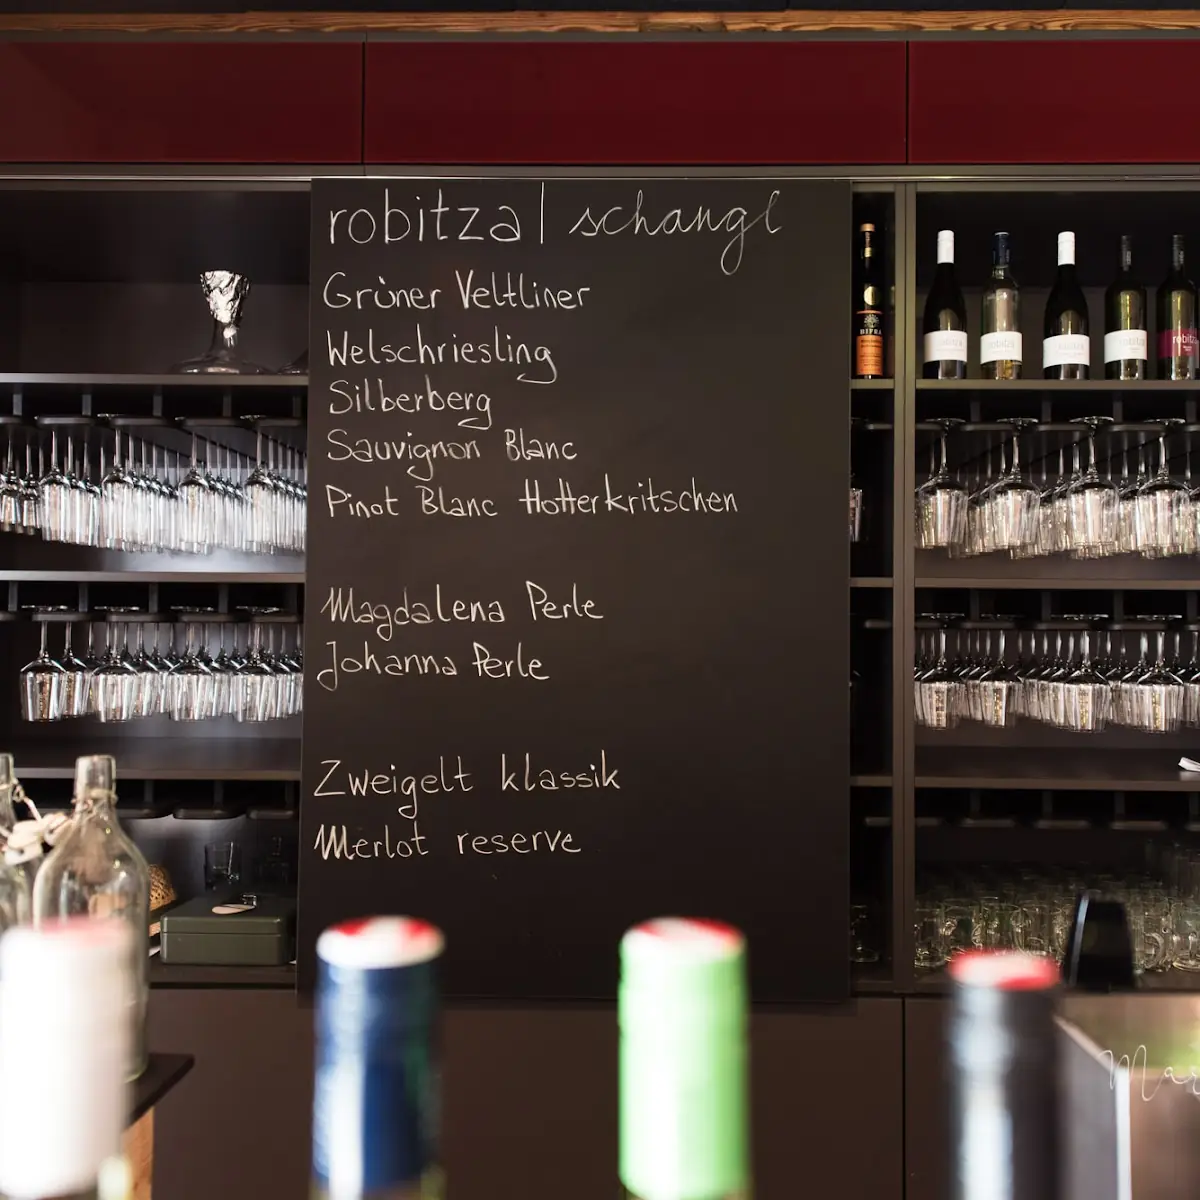 robitza | schangl
Grüner Veltliner
Welschriesling
Silberberg
Sauvignon Blanc
Pinot Blanc Hotterkritschen
Magdalena Perle
Johanna Perle
Zweigelt klassik
Merlot reserve
robitza
robitza
robitza
robitza
robitza